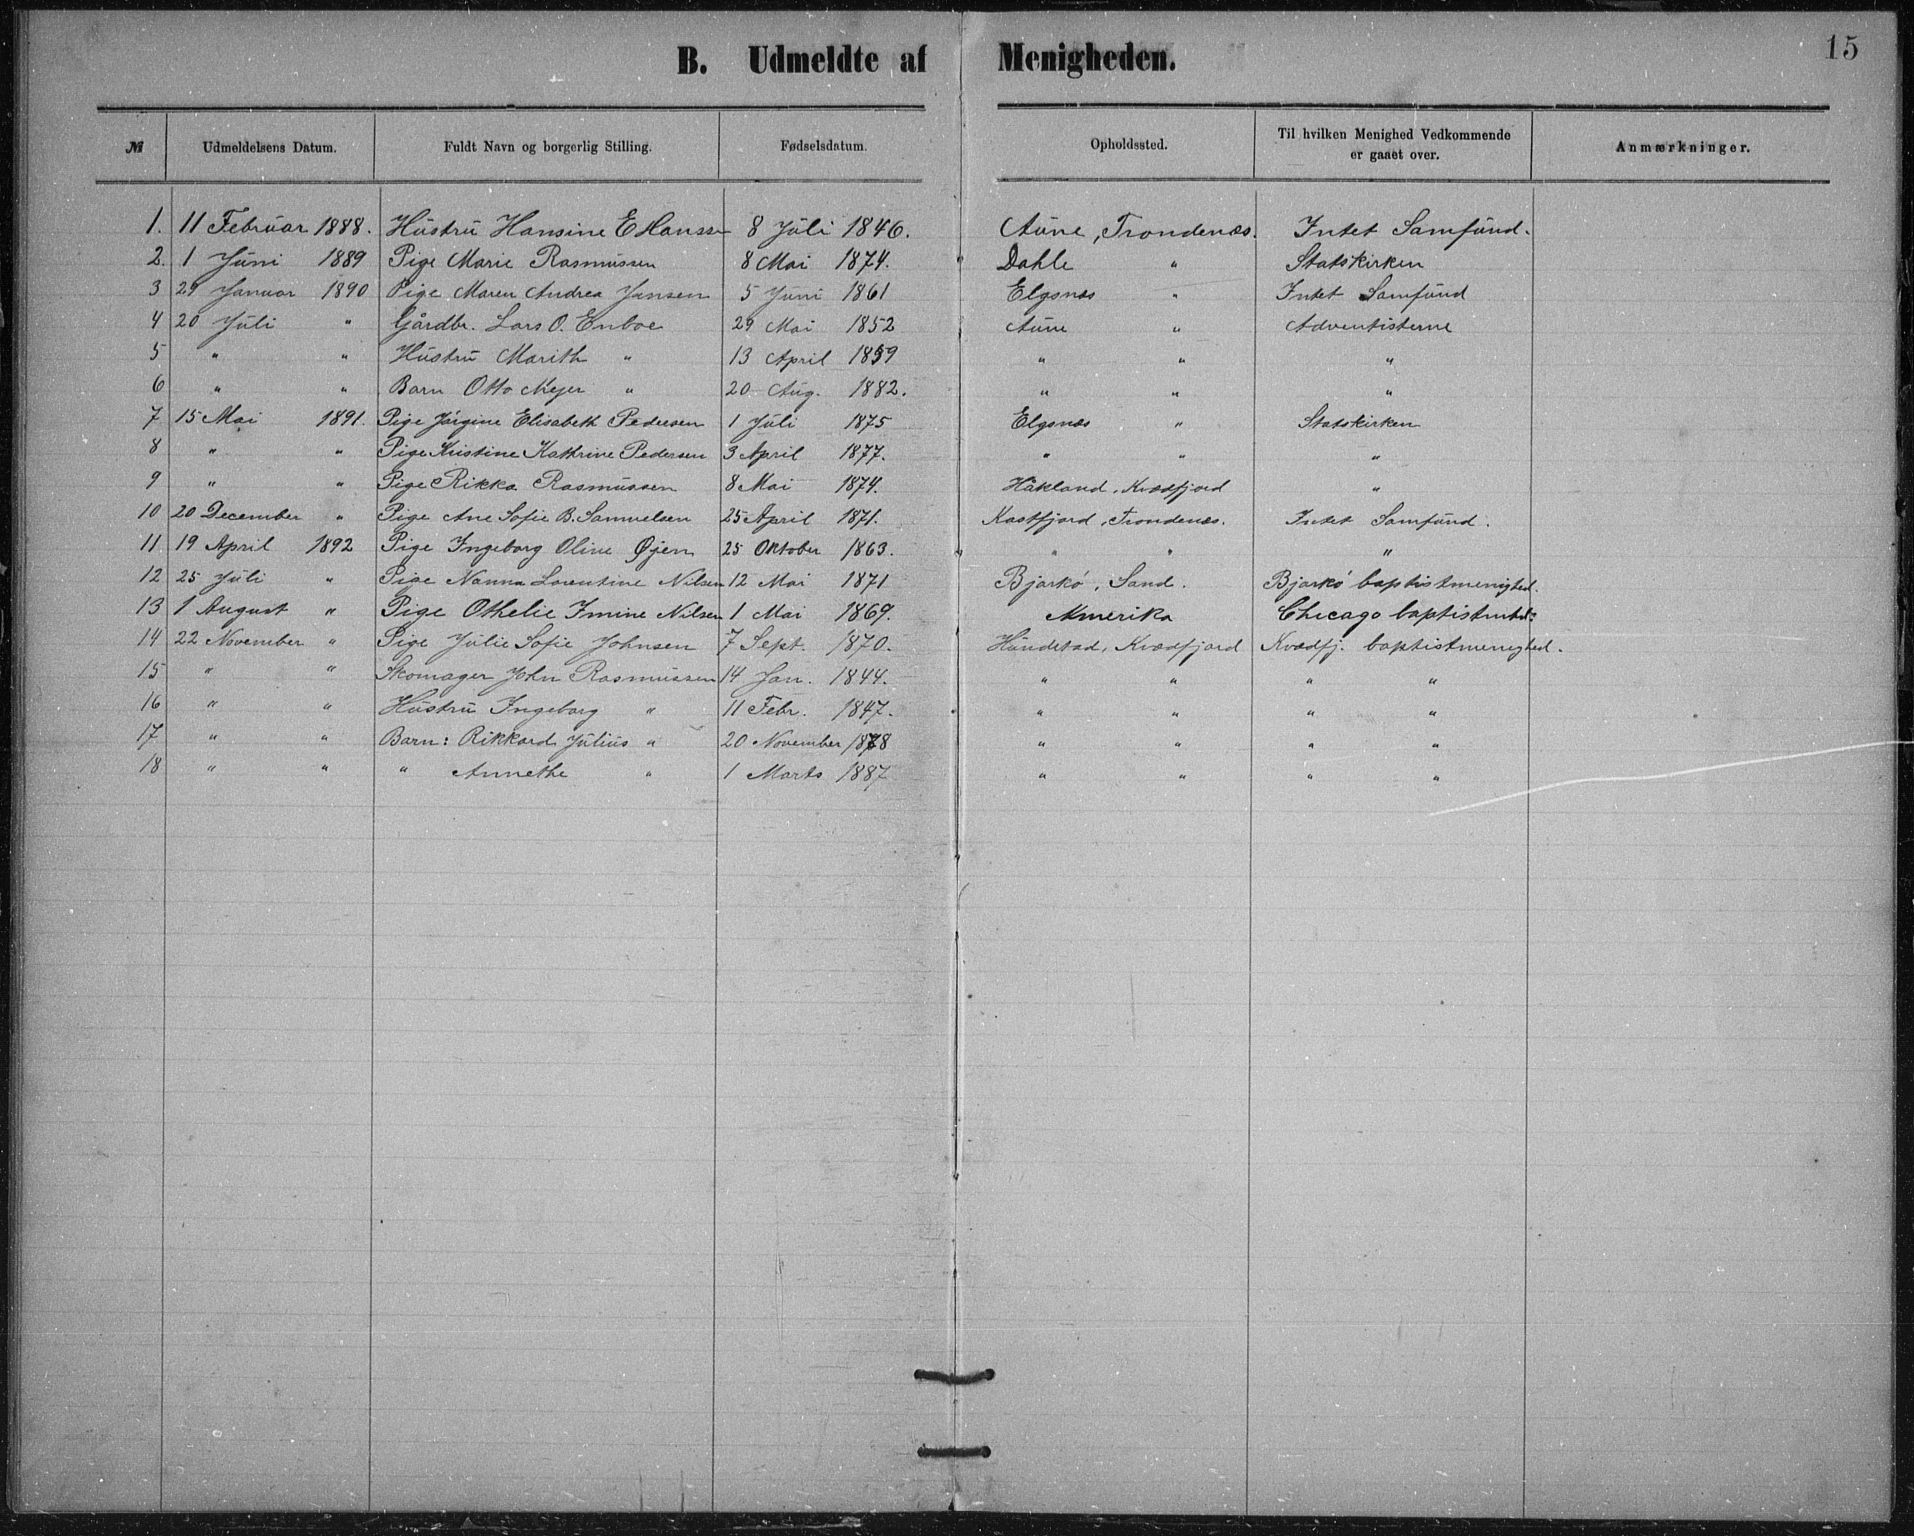 15
B. Udmeldte af Menigheden.
№ Udmeldelsens Datum. Fuldt Navn og borgerlig Stilling. Fødselsdatum. Opholdssted. Til hvilken Menighed Vedkommende er gaaet over. Anmærkninger.
1. 11 Februar 1888. Hustru Hansine E Hanssen 8 Juli 1846. Aune, Trondenæs. Intet Samfund.
2. 1 Juni 1889 Pige Marie Rasmussen 8 Mai 1874. Dahle " Statskirken
3 29 Januar 1890 Pige Maren Andrea Jensen 5 Juni 1861 Elgsnæs " Intet Samfund
4 20 Juli " Gårdbr. Lars O. Enboe 29 Mai 1852 Aune " Adventisterne
5 " " Hustru Marith " 13 April 1859 " " "
6 " " Barn Otto Mejer " 20 Aug. 1882. " " "
7 15 Mai 1891. Pige Jørgine Elisabeth Pedersen 1 Juli 1875 Elgsnæs " Statskirken
8 " " Pige Kristine Kathrine Pedersen 3 April 1877. " " "
9 " " Pige Rikka Rasmussen 8 Mai 1874. Håkland, Kvædfjord "
10 20 December " Pige Ane Sofie B. Samuelsen 25 April 1871. Kastfjord, Trondenæs. Intet Samfund.
11 19 April 1892 Pige Ingeborg Oline Øjen 25 Oktober 1863. " " "
12 25 Juli " Pige Nanna Lorentine Nilsen 12 Mai 1871 Bjarkö, Sand. Bjarkö baptistmenighed.
13 1 August " Pige Othelie Imine Nilsen 1 Mai 1869. Amerika Chicago
14 22 November " Pige Julie Sofie Johnsen 7 Sept. 1870. Hundstad, Kvædfjord Kvædfj. baptistmenighed.
15 " " Skomager John Rasmussen 14 Jan. 1844. " " " "
16 " " Hustru Ingeborg " 11 Febr. 1847. " " " "
17 " " Barn: Rikkard Julius " 20 November 1878 " " " "
18 " " " Annethe " 1 Marts 1887 " " " "